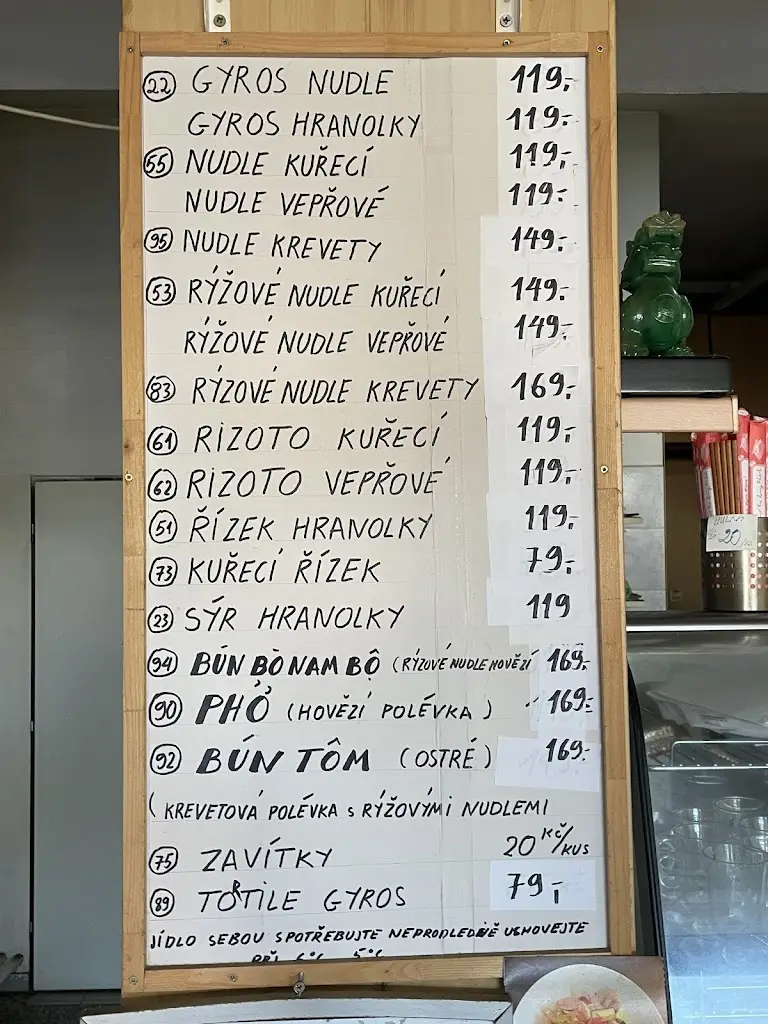 22 GYROS NUDLE 119,-
GYROS HRANOLKY 119.-
55 NUDLE KUŘECÍ 119,-
NUDLE VEPŘOVÉ 119.-
95 NUDLE KREVETY 149.-
53 RÝŽOVÉ NUDLE KUŘECÍ 149.-
RÝŽOVÉ NUDLE VEPŘOVÉ 149.-
83 RÝZOVÉ NUDLE KREVETY 169.-
61 RIZOTO KUŘECÍ 119,-
62 RIZOTO VEPŘOVÉ 119,-
51 ŘÍZEK HRANOLKY 119.-
73 KUŘECÍ ŘÍZEK 79,-
23 SÝR HRANOLKY 119
94 BÚN BÒ NAM BỘ (RÝZOVÉ NUDLE HOVĚZÍ 169.-
90 PHỞ (HOVĚZÍ POLÉVKA) 169.-
92 BÚN TÔM (OSTRÉ) 169.-
(KREVETOVÁ POLÉVKA S RÝŽOVÝMI NUDLEMI
75 ZAVÍTKY 20 KČ/KUS
89 TORTILE GYROS 79,-
JÍDLO SEBOU SPOTŘEBUJTE NEPRODLEDNĚ USHOVEJTE
20